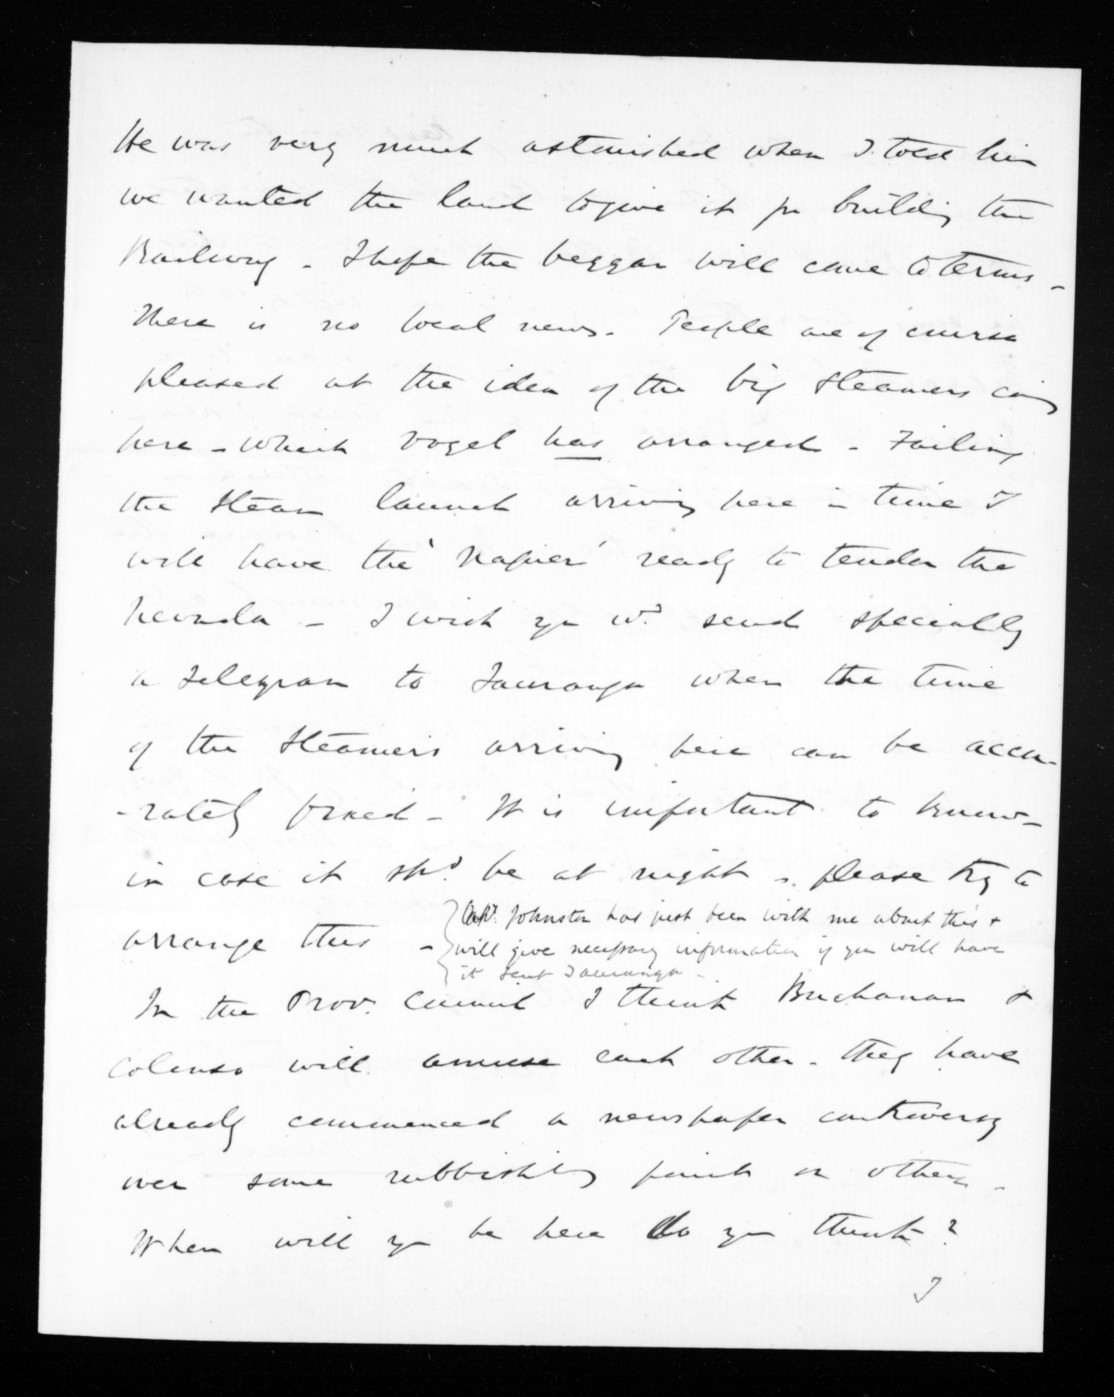 He was very much astonished when I told him
we wanted the land to give it for building the
Railway - I hope the beggar will come to terms -
There is no local news. People are of course
pleased at the idea of the big steamers coming
here - which Vogel has arranged - Failing
the steam launch arriving here in time I
will have the 'Napier' ready to tender the
Nevada - I wish you wd. send specially
a telegram to Tauranga when the time
of the steamers arriving here can be accu-
-rately fixed - It is important to know -
in case it shd. be at night - please try to
arrange this -
Capt. Johnston has just been with me about this &
will give necessary information if you will have
it sent Tauranga -
In the Prov. Council I think Buchanan &
Colenso will amuse each other - they have
already commenced a newspaper controversy
over some rubbishing point or other -
When will you be here do you think?
I